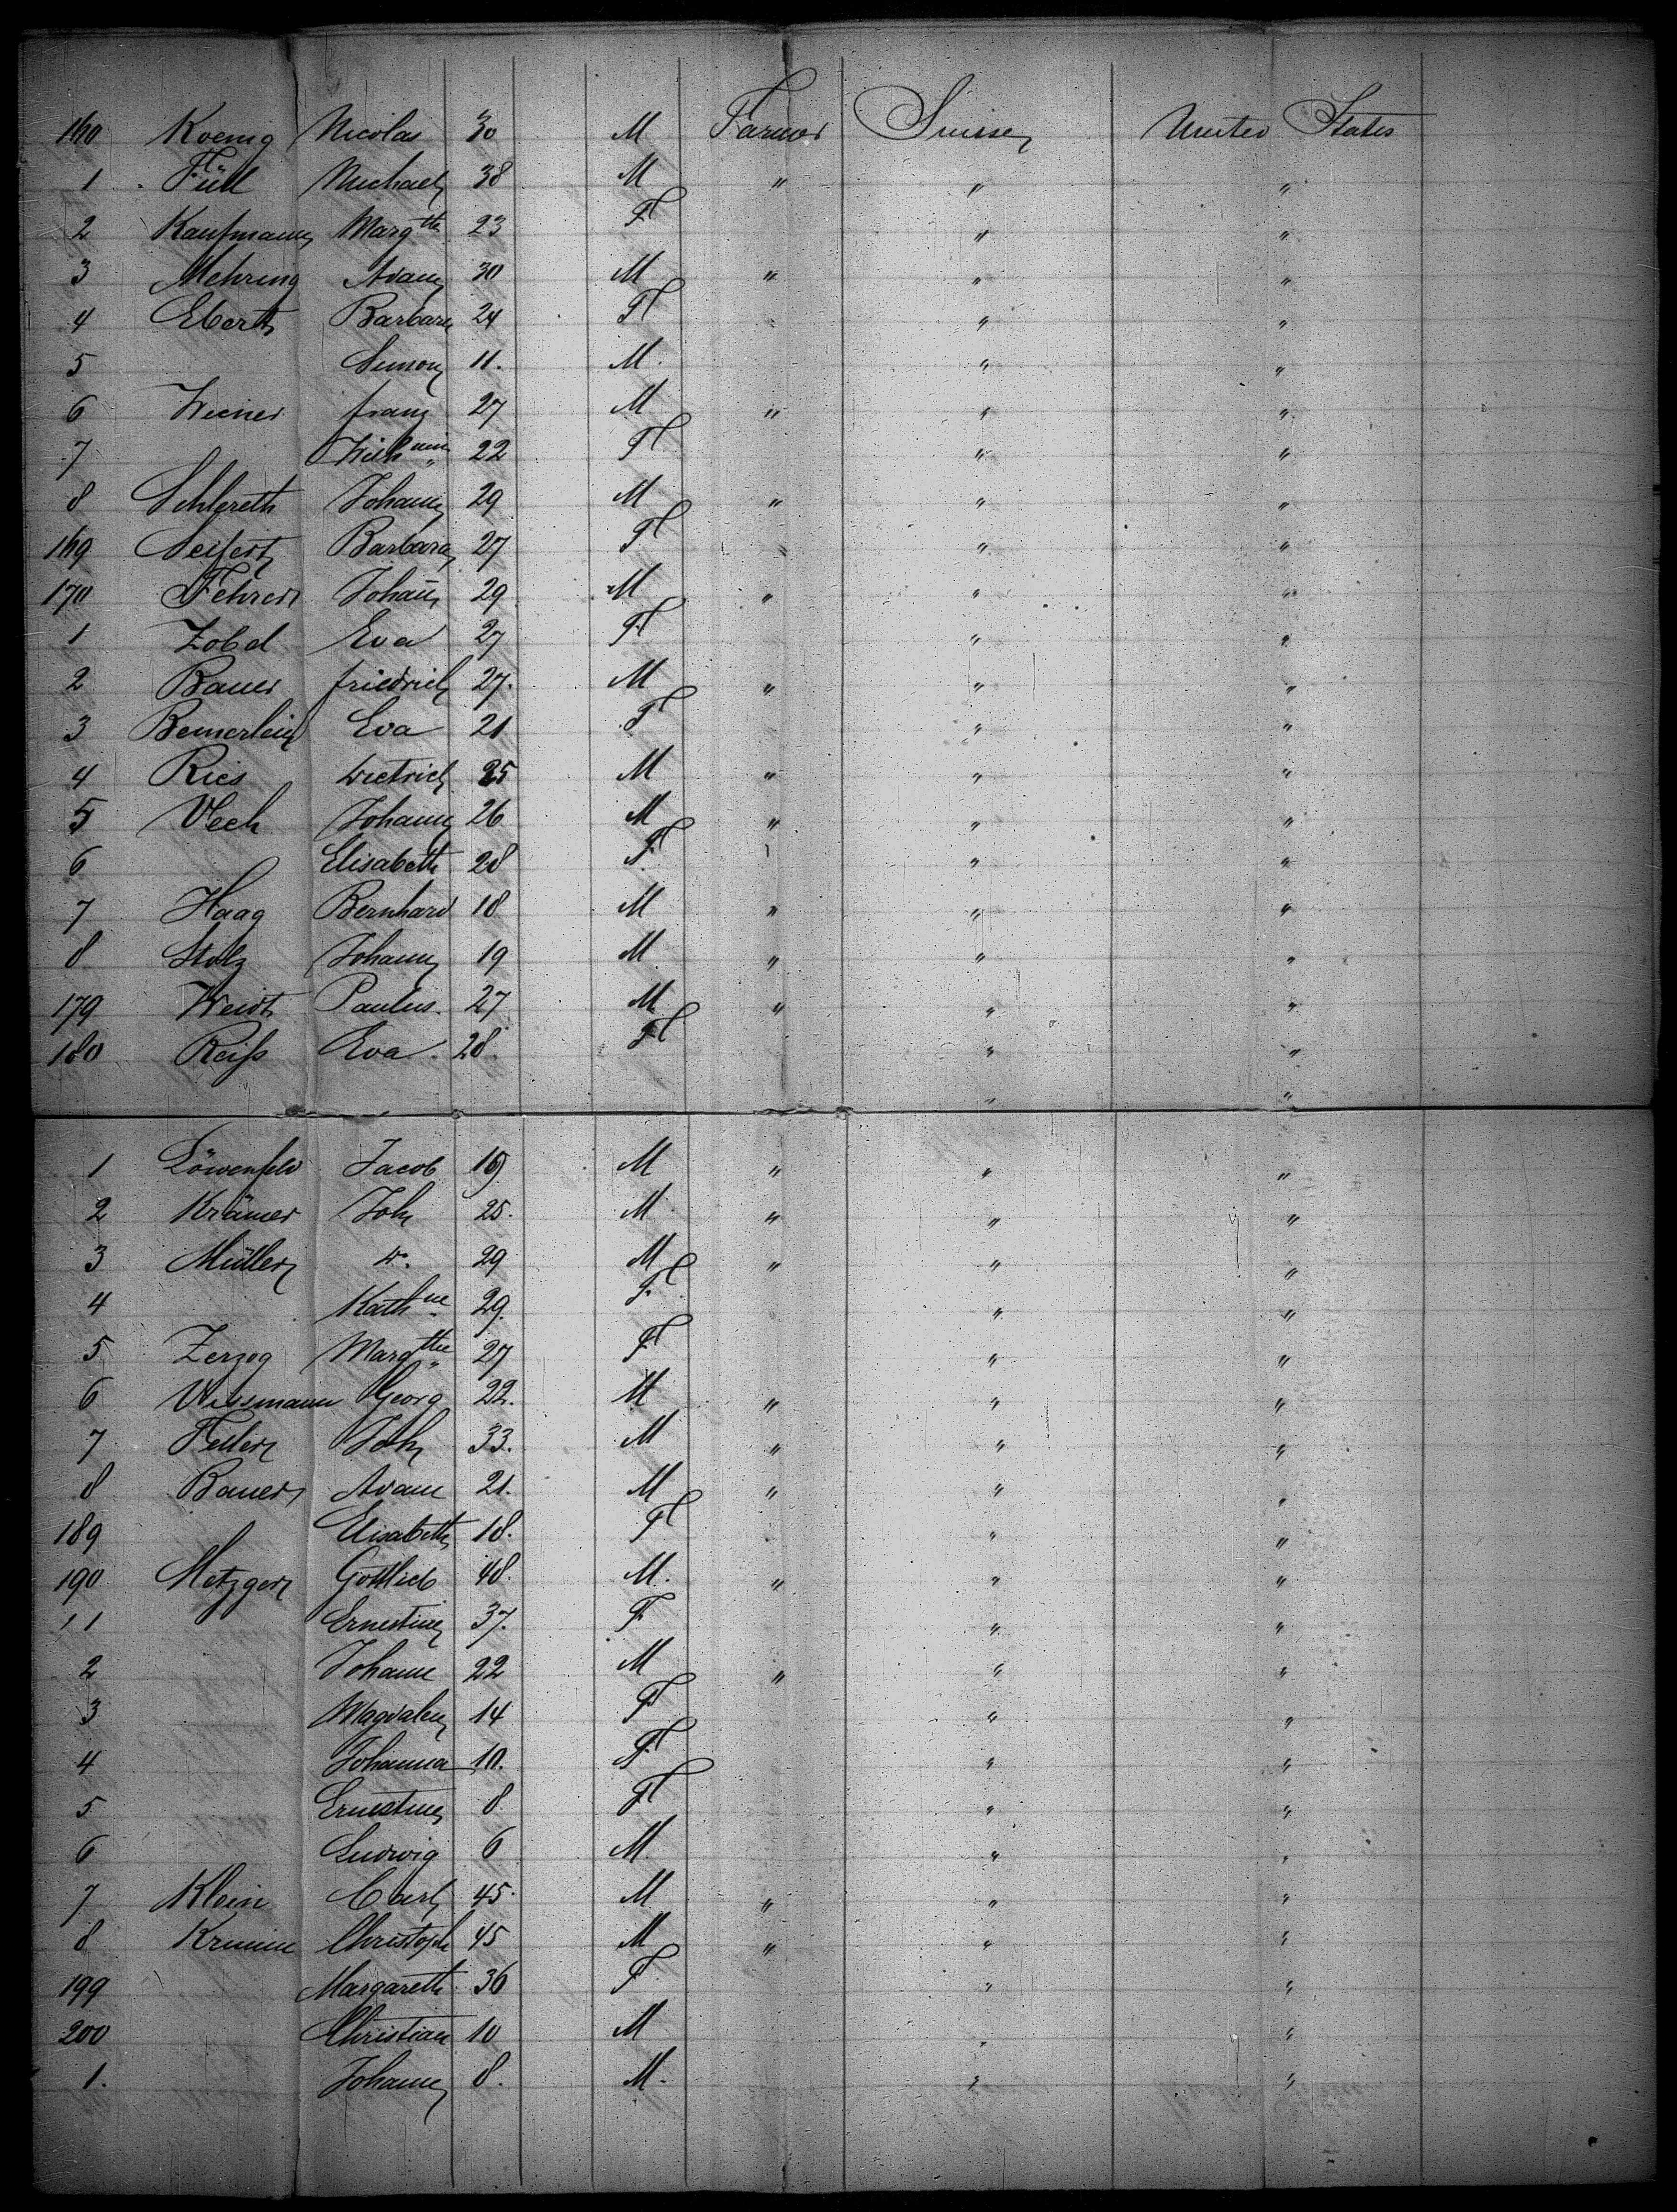 160 Koenig Nicolas 30 M Farmer Suisse United States
1 Füll Michael 38 M " " "
2 Kaufmann Marg^the 23 F " "
3 Mehring Adam 30 M " " "
4 Ebert Barbara 24 F " "
5 Simon 11. M. " "
6 Weiner franz 27 M " " "
7 22 F " "
8 Schlereth Johann 29 M " " "
169 Seifert Barbara 27 F " "
170 Fehrer Johañ 29 M " " "
1 Zobel Eva 27 F " "
2 Bauer friedrich 27. M " " "
3 Bemerlein Eva 21 F " "
4 Ries Dietrich 25 M " " "
5 Vech Johann 26 M " " "
6 Elisabeth 28 F " "
7 Haag Bernhard 18 M " " "
8 Stolz Johann 19 M " " "
179 Weidt Paulus. 27 M " " "
180 Reiß Eva. 28. F " "
" "
1 Löwenfeld Jacob 19 M " " "
2 Krämer Joh 25. M " " "
3 Müller do. 29 M " " "
4 Kath^ne 29. F. " "
5 Zerzog Marg^the 27 F " "
6 Wissmann Georg 22. M " " "
7 Feller Joh 33. M " " "
8 Bauer Adam 21. M " " "
189 Elisabeth 18. F " "
190 Metzger Gottlieb 48. M. " " "
1 Ernestine 37. F " "
2 Johann 22 M " " "
3 Magdalen 14 F " "
4 Johanna 10. F " "
5 Ernestine 8 F " "
6 Ludwig 6 M. " "
7 Klein Carl 45. M " " "
8 Krumm Christoph 45 M " " "
199 Margareth 36 F " "
200 Christian 10 M " "
1. Johann 8. M. " "